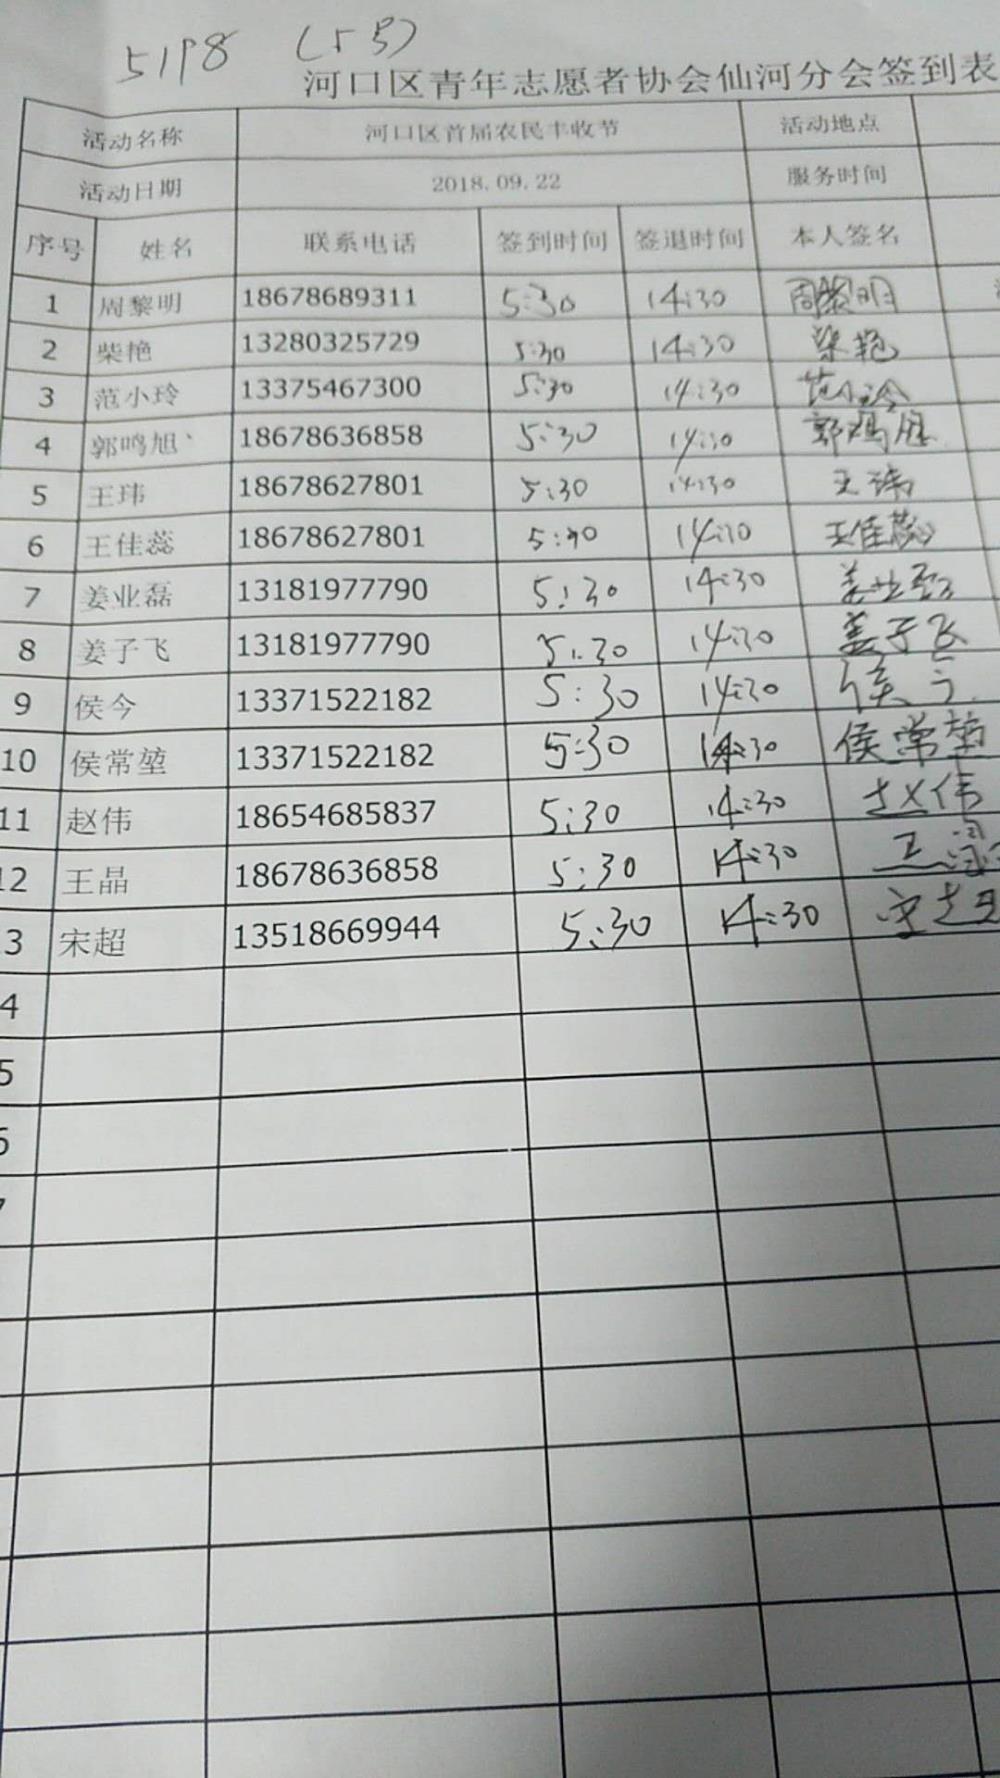 5198 (5号)
河口区青年志愿者协会仙河分会签到表
活动名称 河口区首届农民丰收节 活动地点
活动日期 2018.09.22 服务时间
序号 姓名 联系电话 签到时间 签退时间 本人签名
1 周黎明 18678689311 5:30 14:30 周黎明
2 柴艳 13280325729 5:30 14:30 柴艳
3 范小玲 13375467300 5:30 14:30 范小玲
4 郭鸣旭 18678636858 5:30 14:30 郭鸣旭
5 王玮 18678627801 5:30 14:30 王玮
6 王佳蕊 18678627801 5:30 14:30 王佳蕊
7 姜业磊 13181977790 5:30 14:30 姜业磊
8 姜子飞 13181977790 5:30 14:30 姜子飞
9 侯今 13371522182 5:30 14:30 侯今
10 侯常堃 13371522182 5:30 14:30 侯常堃
11 赵伟 18654685837 5:30 14:30 赵伟
12 王晶 18678636858 5:30 14:30 王晶
3 宋超 13518669944 5:30 14:30 宋超
4
5
6
7